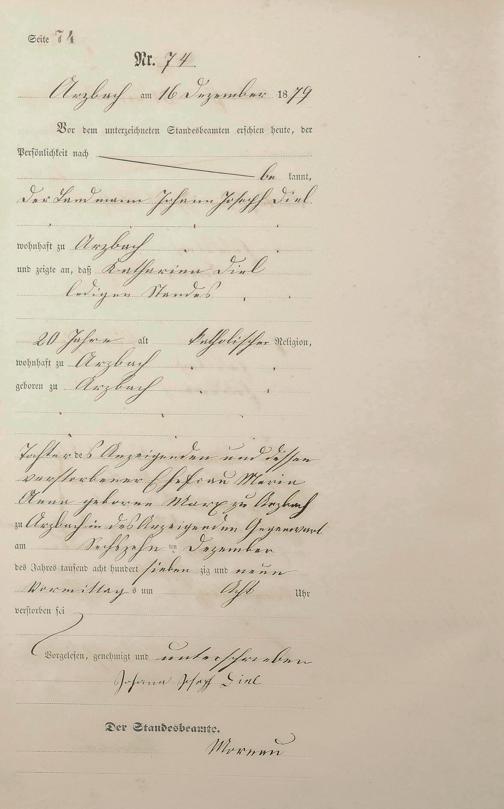 Seite 74
Nr. 74
Arzbach am 16 Dezember 1879
Vor dem unterzeichneten Standesbeamten erschien heute, der
Persönlichkeit nach
be kannt,
der Landmann Johann Joseph Diel
wohnhaft zu Arzbach
und zeigte an, daß Katharina Diel
ledigen Standes
20 Jahre alt katholischer Religion,
wohnhaft zu Arzbach
geboren zu Arzbach
Tochter des Anzeigenden und dessen
verstorbener Ehefrau Maria
Anna geborenen Marx zu Arzbach
zu Arzbach in des Anzeigenden Gegenwart
am Sechszehn ten Dezember
des Jahres tausend acht hundert sieben zig und neun
Vormittag s um Acht Uhr
verstorben sei
Vorgelesen, genehmigt und unterschrieben
Johann Josepf Diel
Der Standesbeamte.